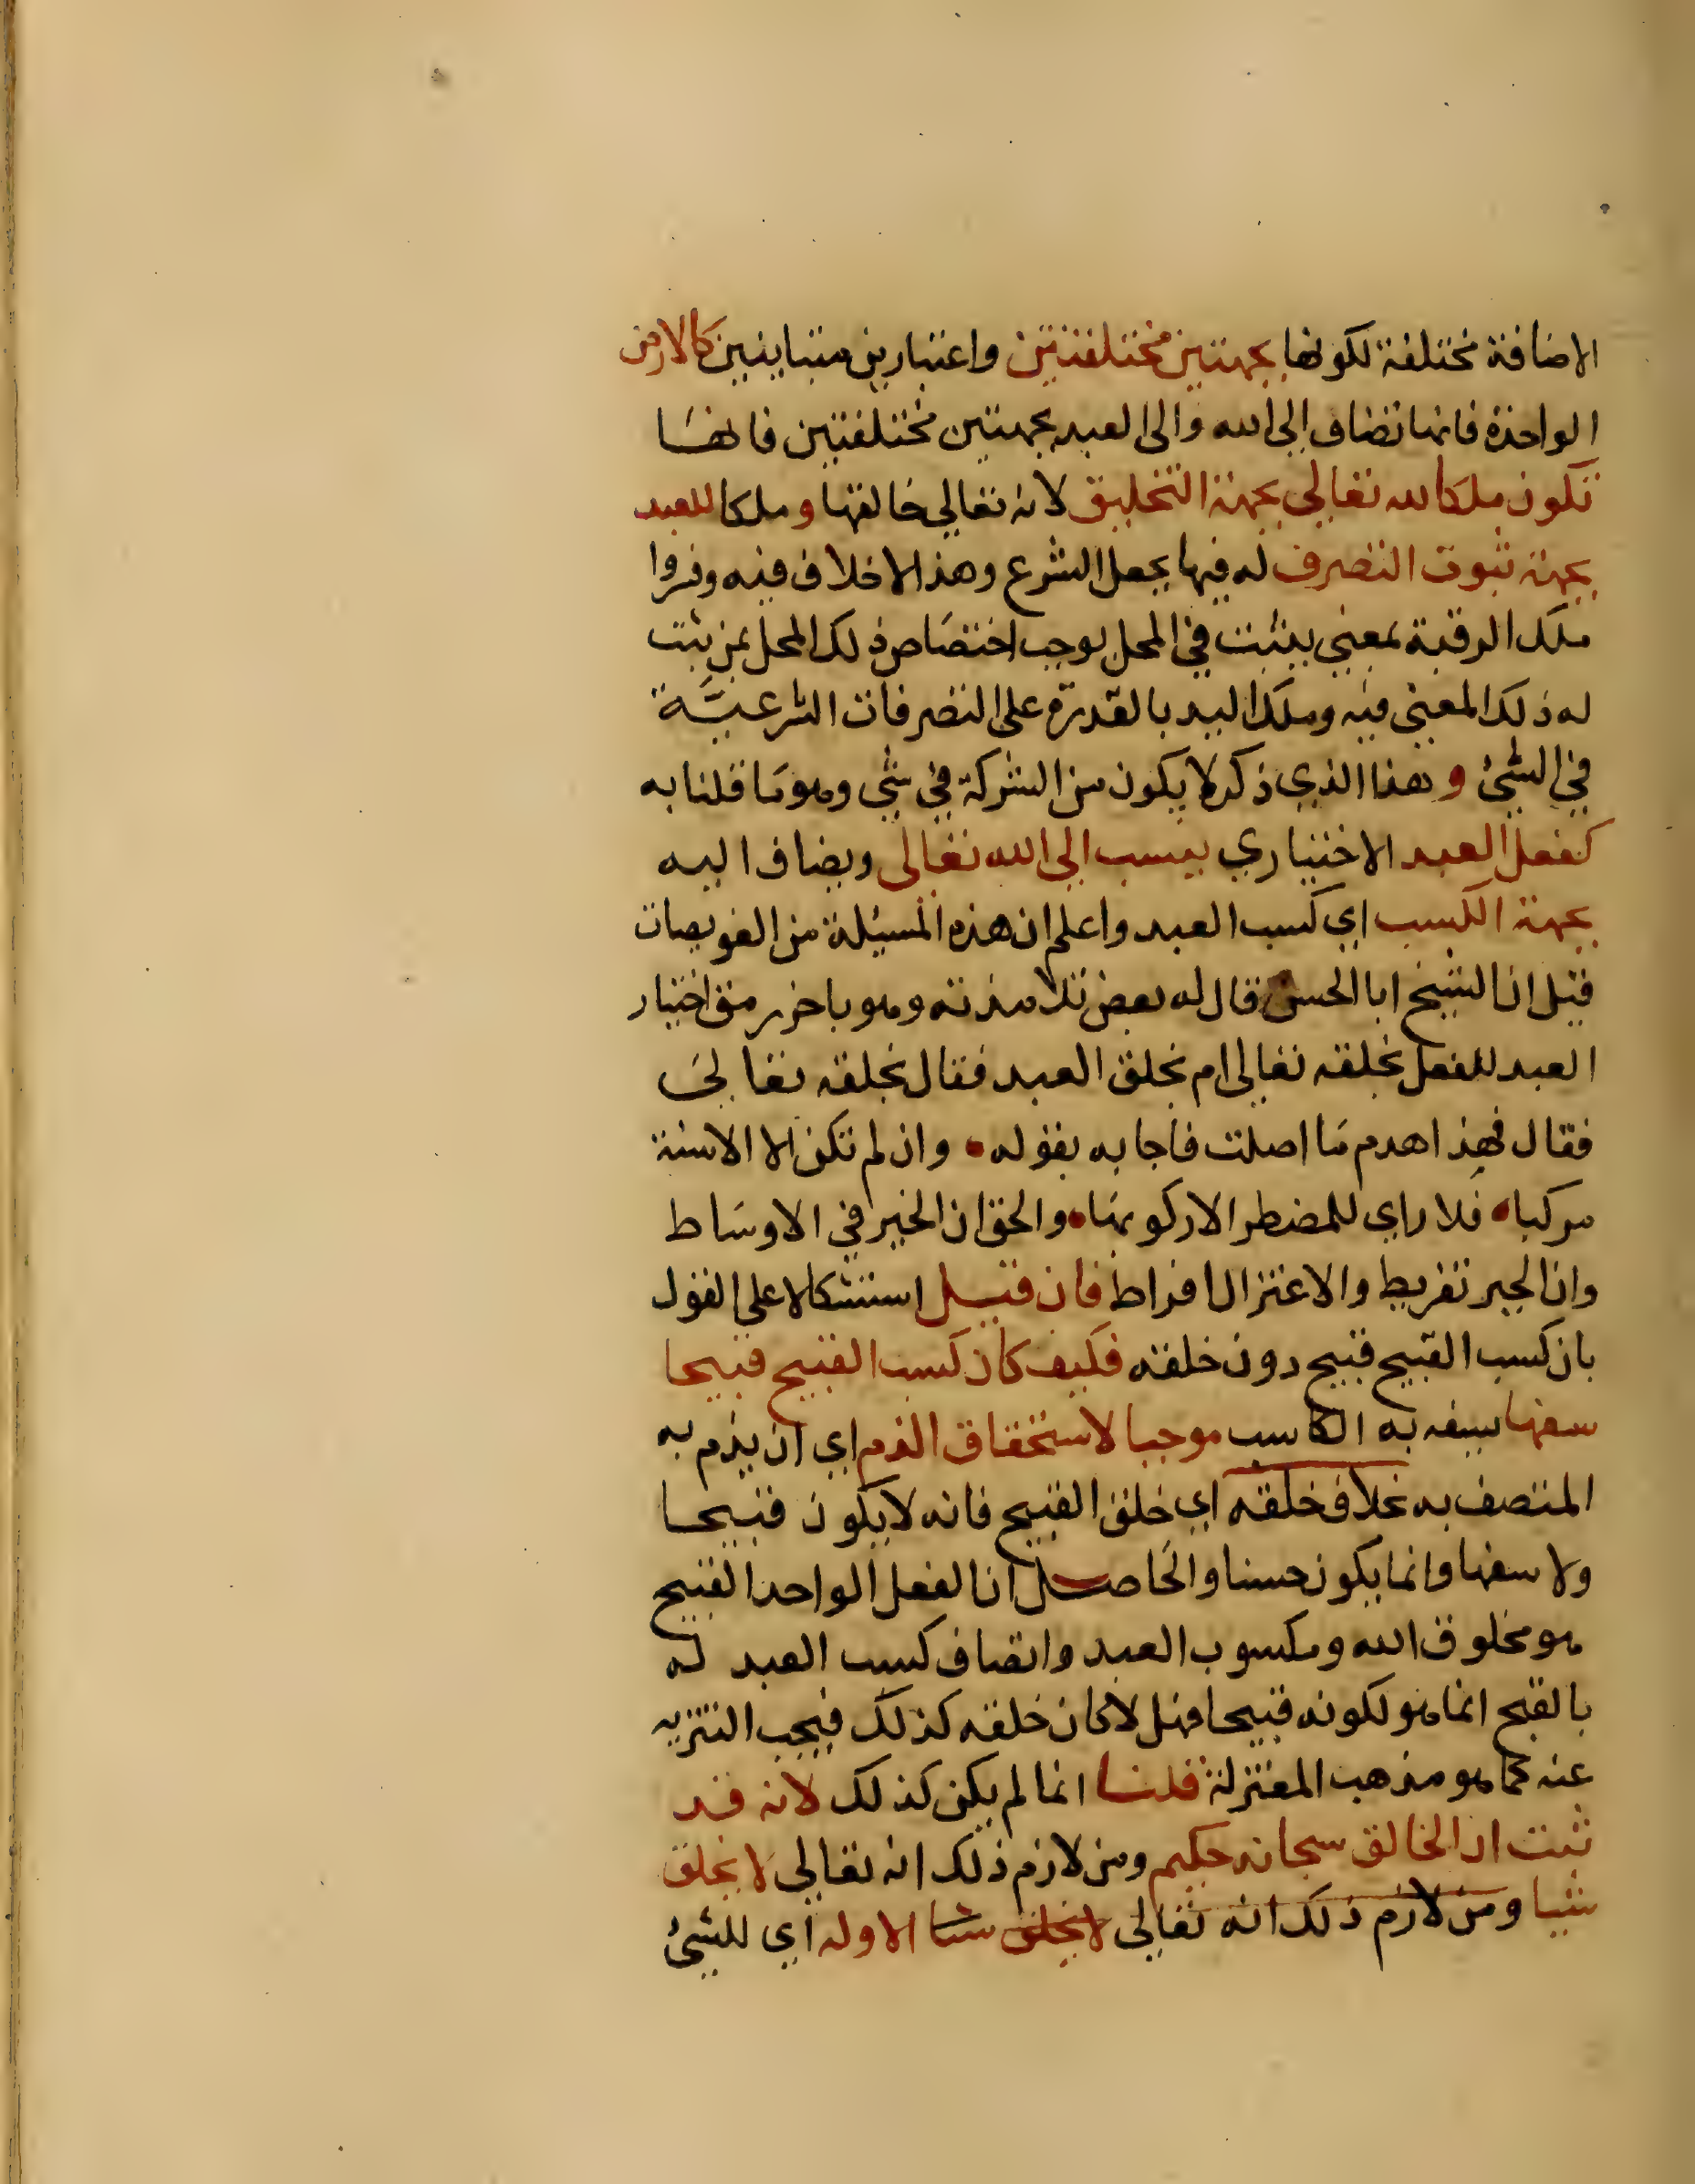 الاضافة مختلفة لكونها بجهتين مختلفتين واعتبارين متباينين كالارض
الواحدة فانها تضاف الى الله والى العبد بجهتين مختلفتين فانها
تكون ملكا لله تعالي بجهة التخليق لانه تعالي خالقها وملكا للعبد
بجهة ثبوت التصرف له فيها بجعل الشرع وهذا لاخلاف فيه
ملك الرقبة بمعني يثبت في المحل يوجب اختصاص ذلك المحل بمن يثبت
له ذلك المعني فيه وملك اليد بالقدرة على التصرفات الشرعية
في الشئ وهذا الذي ذكر لا يكون من الشركة في شي وهو ما قلنا به
كفعل العبد الاختياري ينسب الى الله تعالى ويضاف اليه
بجهة الكسب اي كسب العبد واعلم ان هذه المسئلة من العويصات
قيل ان الشيخ ابا الحسن قال له بعض تلامذته وهو اختيار
العبد للفعل بخلقه تعالى ام بخلق العبد فقال بخلقه تعالى
فقال فهذا هدم ما اصلت فاجابه بقوله • وان لم تكن الا الاسنة
مركبا • فلا راي للمضطر الا ركوبها • والحق ان الخير في الاوساط
وان الجبر تفريط والاعتزال افراط فان قيل استشكالا على القول
بان كسب القبيح قبيح دون خلقه فكيف كان كسب القبيح قبيحا
سفها يسفه به الكاسب موجبا لاستحقاق الذم اي ان يذم به
المتصف به بخلاف خلقه اي خلق القبيح فانه لا يكون قبيحا
ولا سفها وانما يكون حسنا والحاصل ان الفعل الواحد القبيح
هو مخلوق الله ومكسوب العبد واتصاف كسب العبد له
بالقبح انما هو لكونه قبيحا فهل لا كان خلقه كذلك فيجب التنزيه
عنه كما هو مذهب المعتزلة قلنا انما لم يكن كذلك لانه قد
ثبت ان الخالق سبحانه حكيم ومن لازم ذلك انه تعالي لا يخلق
شيا ومن لازم ذلك انه تعالى لا يخلق شيا الا وله اي للشئ